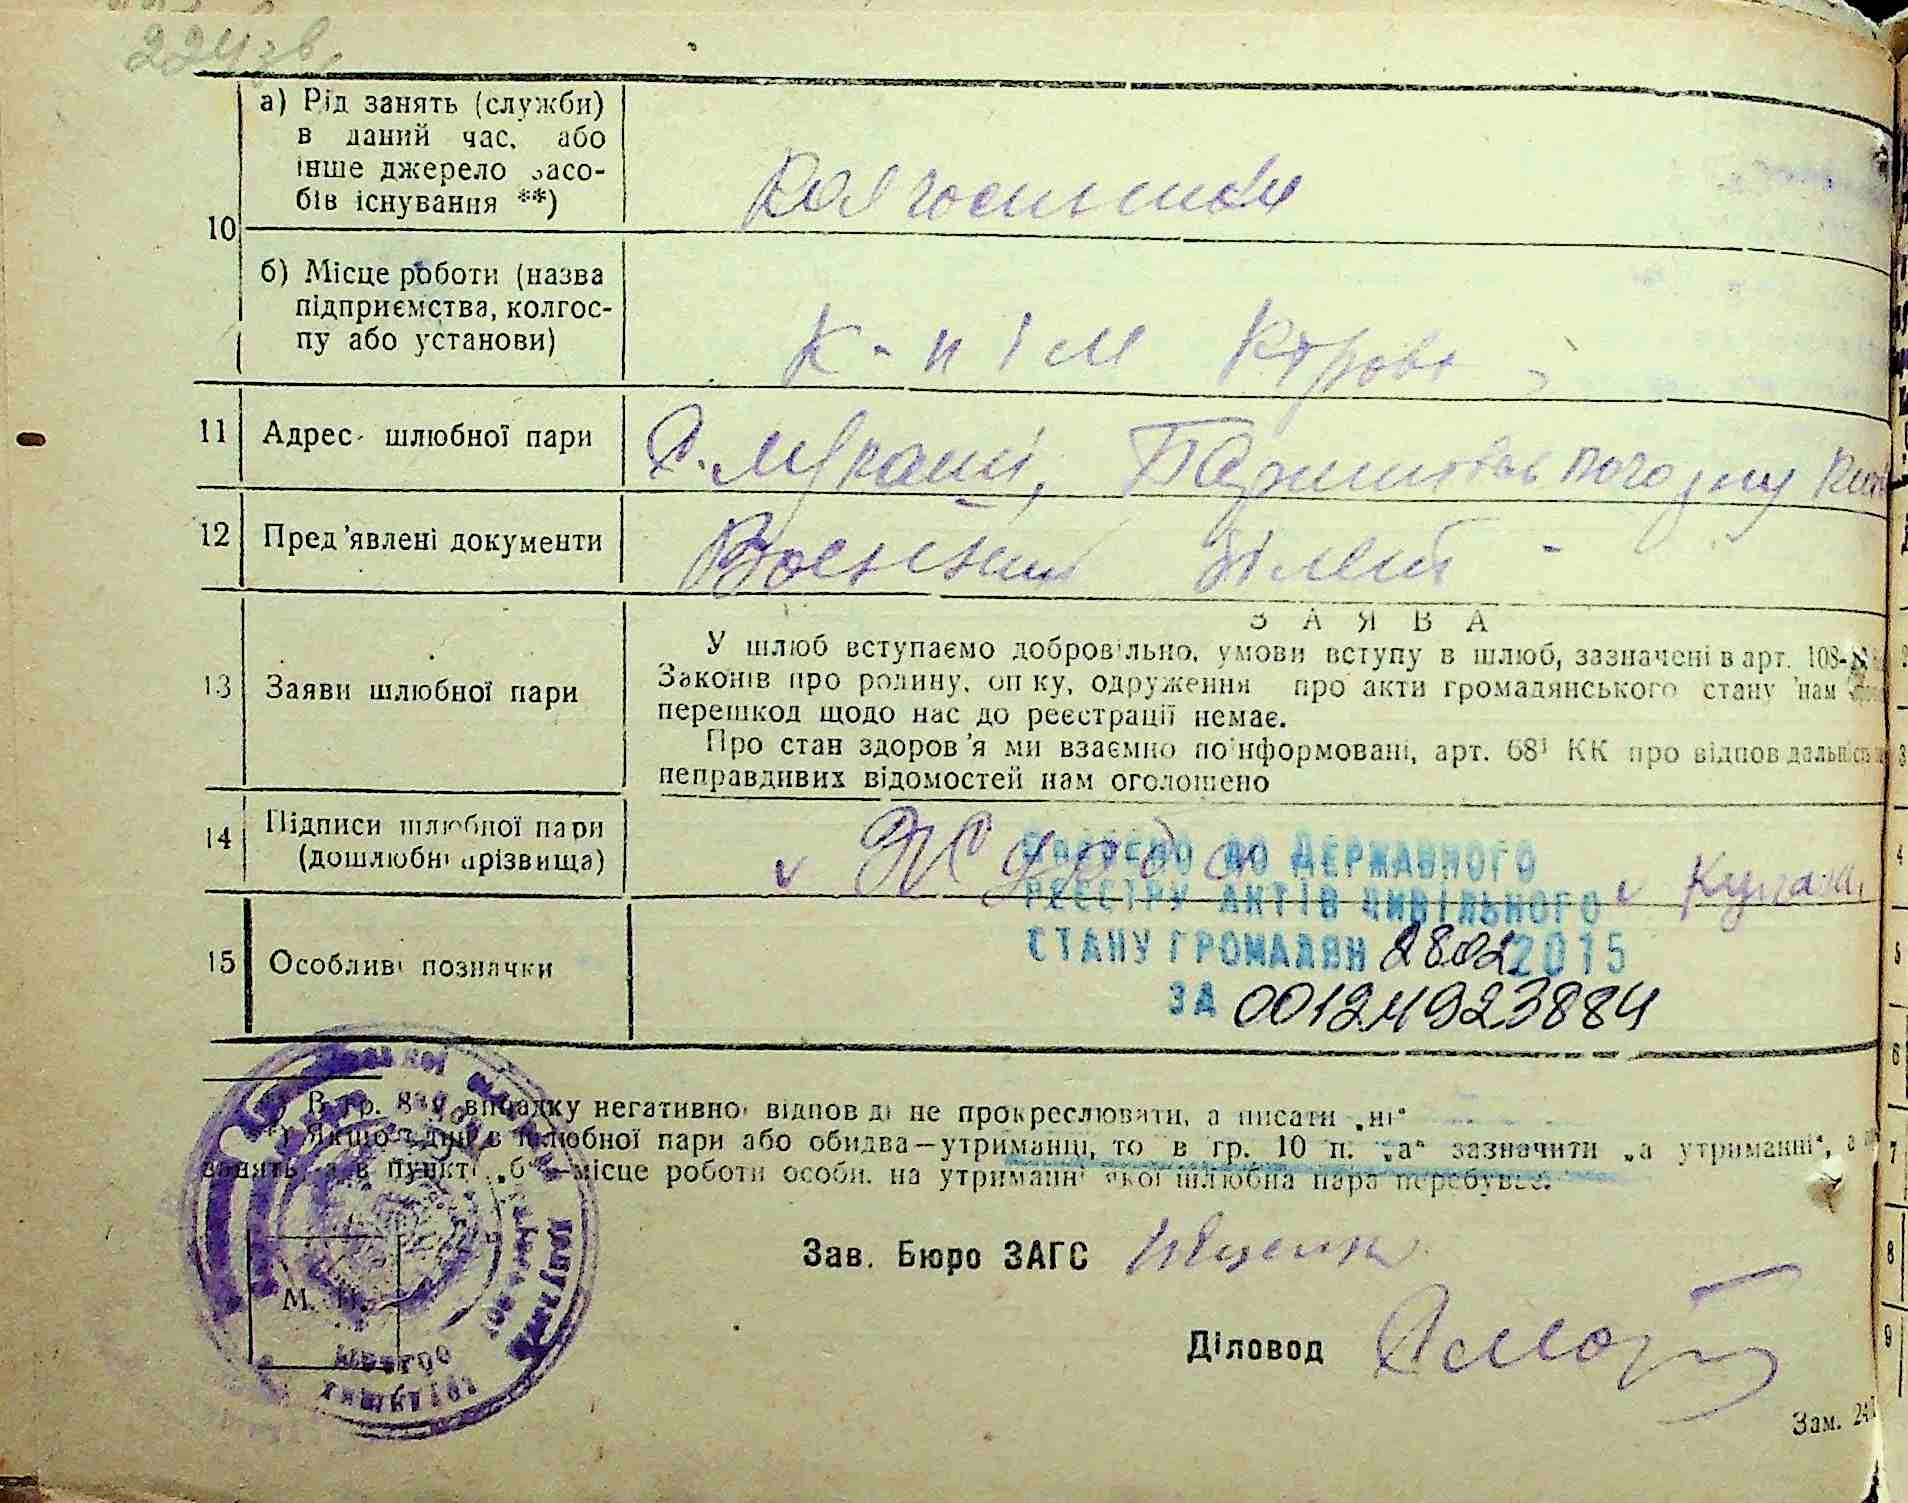 224 зв.
10
а) Рід занять (служби)
в даний час, або
інше джерело засо-
бів існування **)
Колгоспники
б) Місце роботи (назва
підприємства, колгос-
пу або установи)
К-п ім Кірова
11 Адрес шлюбної пари
12 Пред'явлені документи
Воєнний білет -
З А Я В А
13 Заяви шлюбної пари
У шлюб вступаємо добровільно, умови вступу в шлюб, зазначені в арт. 108-
Законів про родину, опіку, одруження про акти громадянського стану нам
перешкод щодо нас до реєстрації немає.
Про стан здоров'я ми взаємно поінформовані, арт. 68¹ КК про відповідальність
неправдивих відомостей нам оголошено
14 Підписи шлюбної пари
(дошлюбні прізвища)
v v
ВНЕСЕНО ДО ДЕРЖАВНОГО
РЕЄСТРУ АКТІВ ЦИВІЛЬНОГО
СТАНУ ГРОМАДЯН 28.02 2015
ЗА 00124923884
15 Особливі позначки
*) В гр. 8 9 випадку негативної відповіді не прокреслювати, а писати „ні“
**) Якщо один в шлюбної пари або обидва—утриманці, то в гр. 10 п. „а“ зазначити „а утриманні“, а
занять, а в пункті „б“—місце роботи особи, на утриманні якої шлюбна пара перебуває.
Зав. Бюро ЗАГС
М. П.
Діловод
Зам. 24